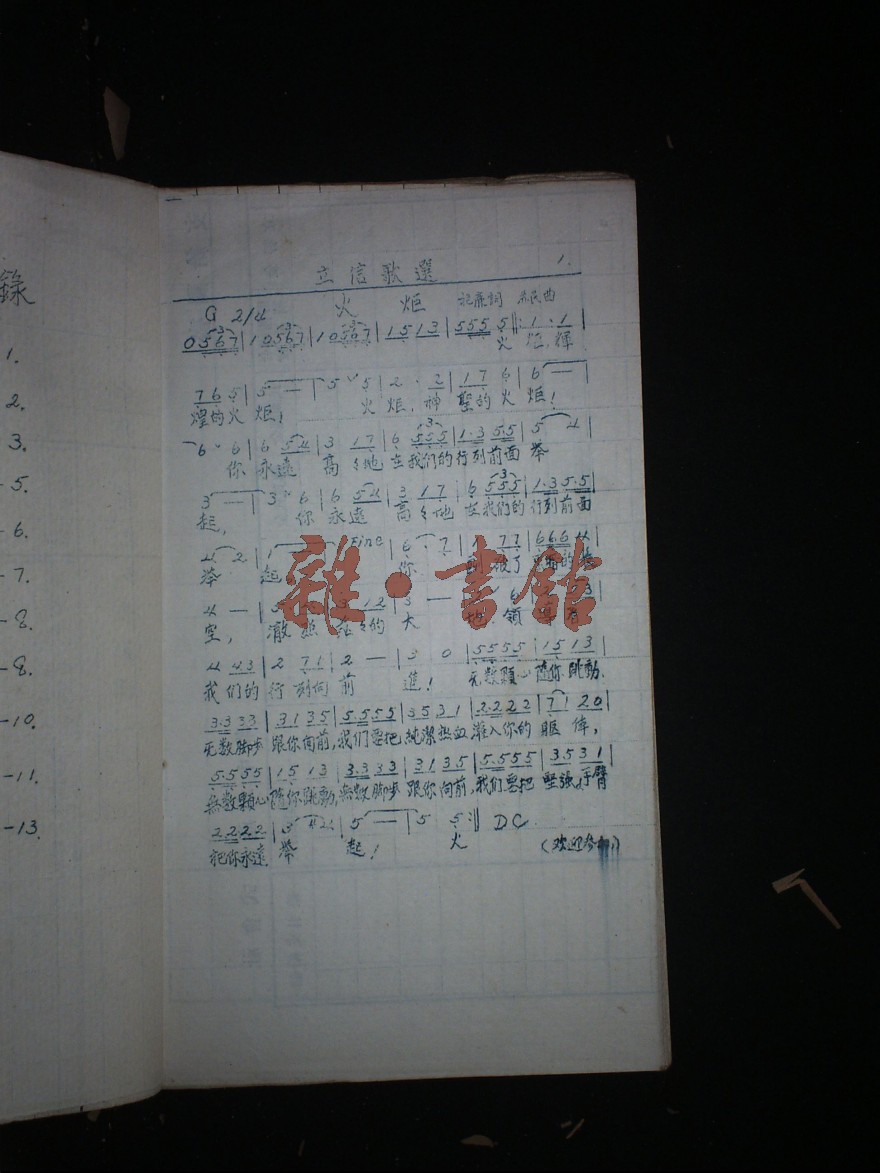 錄
1.
2.
3.
-5.
-6.
-7.
-8.
-8.
-10.
-11.
-13.
立信歌選 1.
G 2/4 火 炬
0 5 6 7 | 1 0 5 6 7 | 1 0 5 6 7 | 1 5 1 3 | 5 5 5 5 ‖: 1 · 1 |
火 炬, 輝
7 6 5 | 5 — | 5 5 | 2 · 2 | 1 7 6 | 6 — |
煌的火 炬! 火 炬, 神 聖的 火 炬!
6 · 6 | 6 5 4 | 3 1 7 | 6 5 5 5 | 1 · 3 5 5 | 5 4 |
你 永遠 高々地 在我們的行列前面 舉
3 — | 3 6 | 6 5 4 | 3 1 7 | 6 5 5 5 | 1 · 3 5 · 5 |
起, 你 永遠 高々地 在我們的 行列前面
4 2 | 1 Fine 6 · 7 | 7 7 | 6 6 6 4
舉 起 你 了 的
4 — 3 1 2 | 3 — 6 3
空, 的 大 地 領
4 4 3 | 2 7 1 | 2 — | 3 0 | 5 5 5 5 | 1 5 1 3 |
我们的 行列向 前 進! 无数顆心 隨你跳動,
3 · 3 3 3 | 3 1 3 5 | 5 · 5 5 5 | 3 5 3 1 | 2 · 2 2 2 | 7 1 2 0 |
无数脚步 跟你向前, 我们要把 純潔熱血 灌入你的 軀 体,
5 · 5 5 5 | 1 5 1 3 | 3 · 3 3 3 | 3 1 3 5 | 5 · 5 5 5 | 3 5 3 1 |
無数顆心 隨你跳動, 無数脚步 跟你向前, 我们要把 堅強手臂
2 · 2 2 2 | 3 4 4 | 5 — | 5 5 :‖ D C.
把你永遠 舉 起! 火 (欢迎参加)
雜·書館